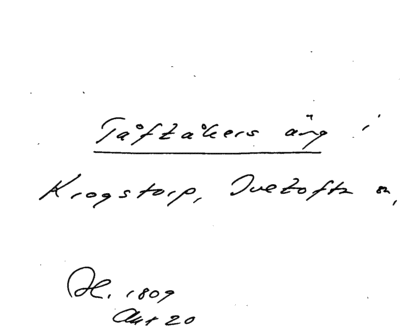 Tåftåkers äng i
Krogstorp, Ivetofta sn,
1809
Akt 20